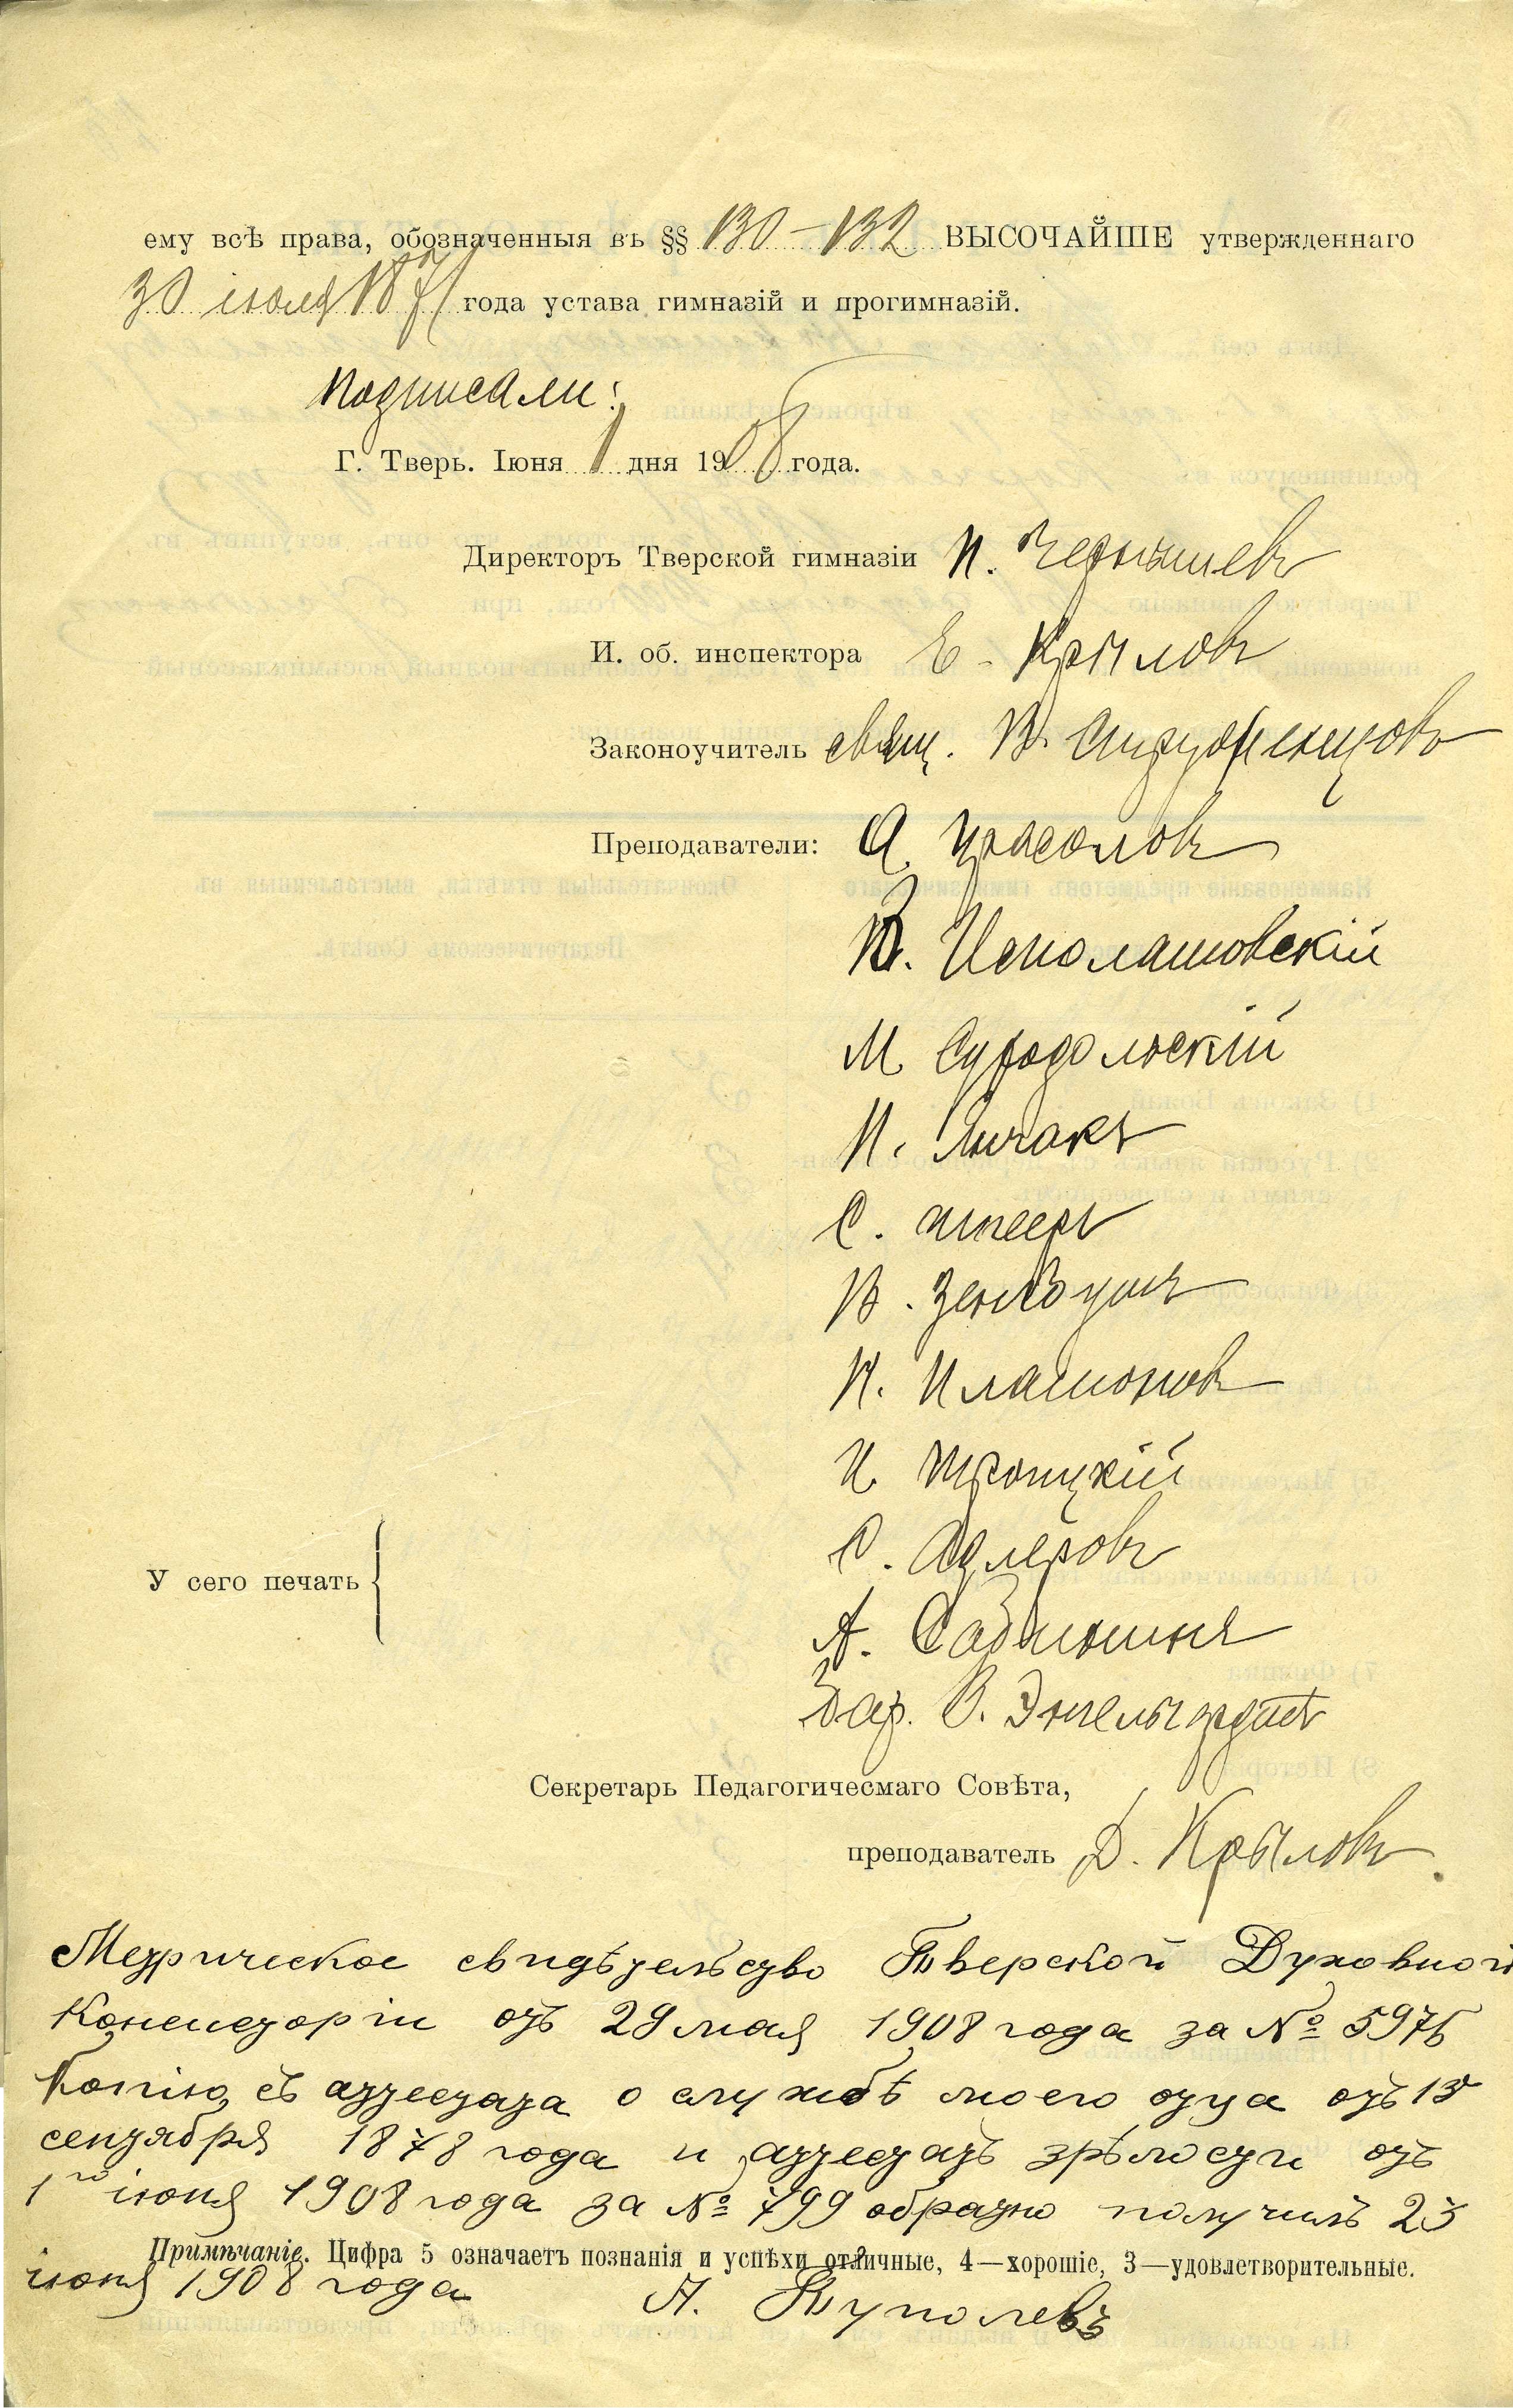 ему всѣ права, обозначенныя въ §§ 130–132 ВЫСОЧАЙШЕ утвержденнаго
30 іюля 1871 года устава гимназій и прогимназій.
Подписали:
Г. Тверь. Іюня 1 дня 1908 года.
Директоръ Тверской гимназіи П. Чернышевъ
И. об. инспектора Е. Крыловъ
Законоучитель свящ. В.
Преподаватели: А.
В. Исполатовскій
М. Суходольскій
И. Личакъ
С.
В.
И. Платоновъ
И. Троицкій
С. Адлеровъ
А.
Бар. В. Энгельгардтъ
У сего печать
Секретарь Педагогичесмаго Совѣта,
преподаватель Д. Крыловъ.
Метрическое свидѣтельство Тверской Духовной
Консисторіи отъ 29 мая 1908 года за № 5976
Копію съ аттестата о службѣ моего отца отъ 13
сентября 1878 года и аттестатъ зрѣлости отъ
1го іюня 1908 года за № 799 обратно получилъ 23
Примѣчаніе. Цифра 5 означаетъ познанія и успѣхи отличные, 4—хорошіе, 3—удовлетворительные.
іюня 1908 года
А. Туполевъ